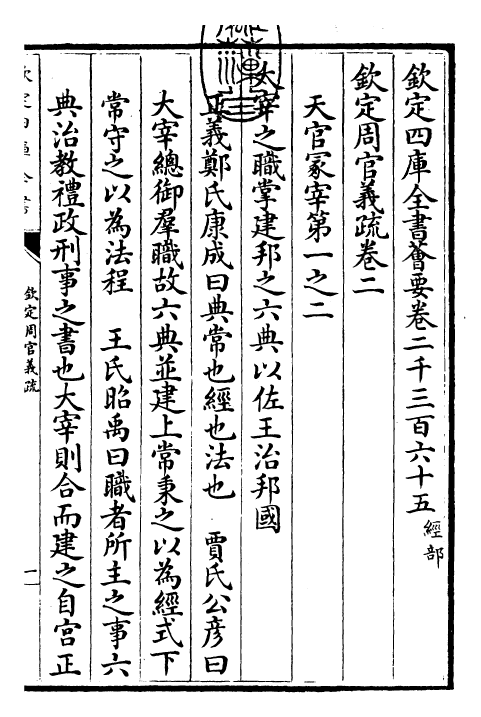 欽定四庫全書薈要卷二千三百六十五 經部
欽定周官義疏卷二
天官冢宰第一之二
大宰之職掌建邦之六典以佐王治邦國
正義鄭氏康成曰典常也經也法也 賈氏公彥曰
大宰總御羣職故六典並建上常秉之以為經式下
常守之以為法程 王氏昭禹曰職者所主之事六
典治教禮政刑事之書也大宰則合而建之自宫正
欽定周官義疏
一